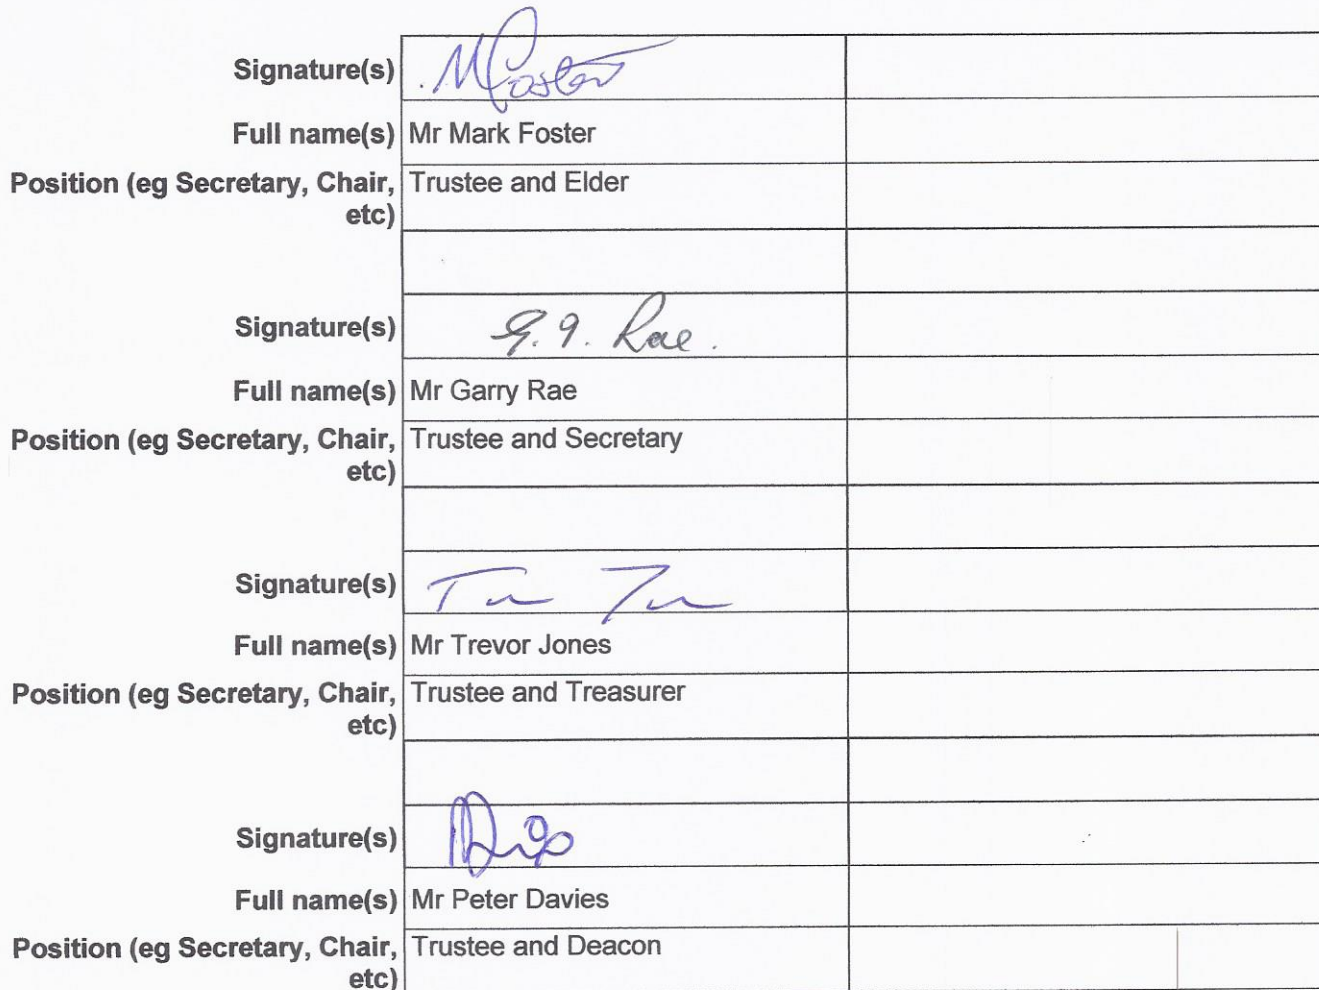 Signature(s) M Foster
Full name(s) Mr Mark Foster
Position (eg Secretary, Chair, Trustee and Elder
etc)
Signature(s) G. G. Rae.
Full name(s) Mr Garry Rae
Position (eg Secretary, Chair, Trustee and Secretary
etc)
Signature(s)
Full name(s) Mr Trevor Jones
Position (eg Secretary, Chair, Trustee and Treasurer
etc)
Signature(s)
Full name(s) Mr Peter Davies
Position (eg Secretary, Chair, Trustee and Deacon
etc)